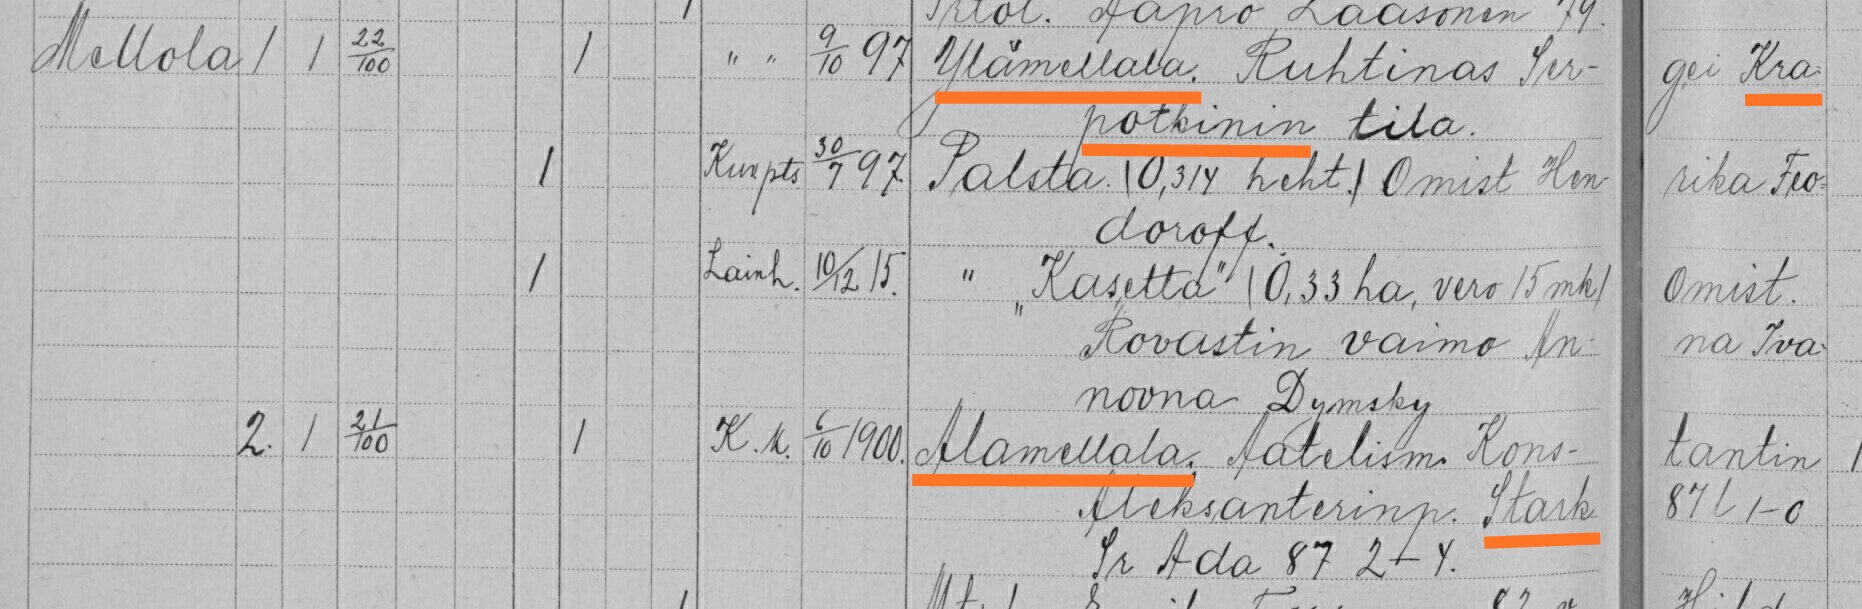 Irtol. Aapro Laasonen 79.
Mellola 1 1 22/100 1 " " 9/10 97 Ylämellala. Ruhtinas Ser- gei Kra-
potkinin tila.
1 Kunpts. 30/7 97. Palsta. (0,314 heht.) Omist Hen- rika Feo-
doroff.
1 Lainh. 10/12 15. " „Kasetta" (0,33 ha, vero 15 mk) Omist.
Rovastin vaimo An- na Iva-
novna Dymsky
2. 1 21/100 1 K. M. 6/10 1900. Alamellala. Aatelism. Kons- tantin
Aleksanterinp. Stark 87 l 1-0
Sr Ada 87 2-4.